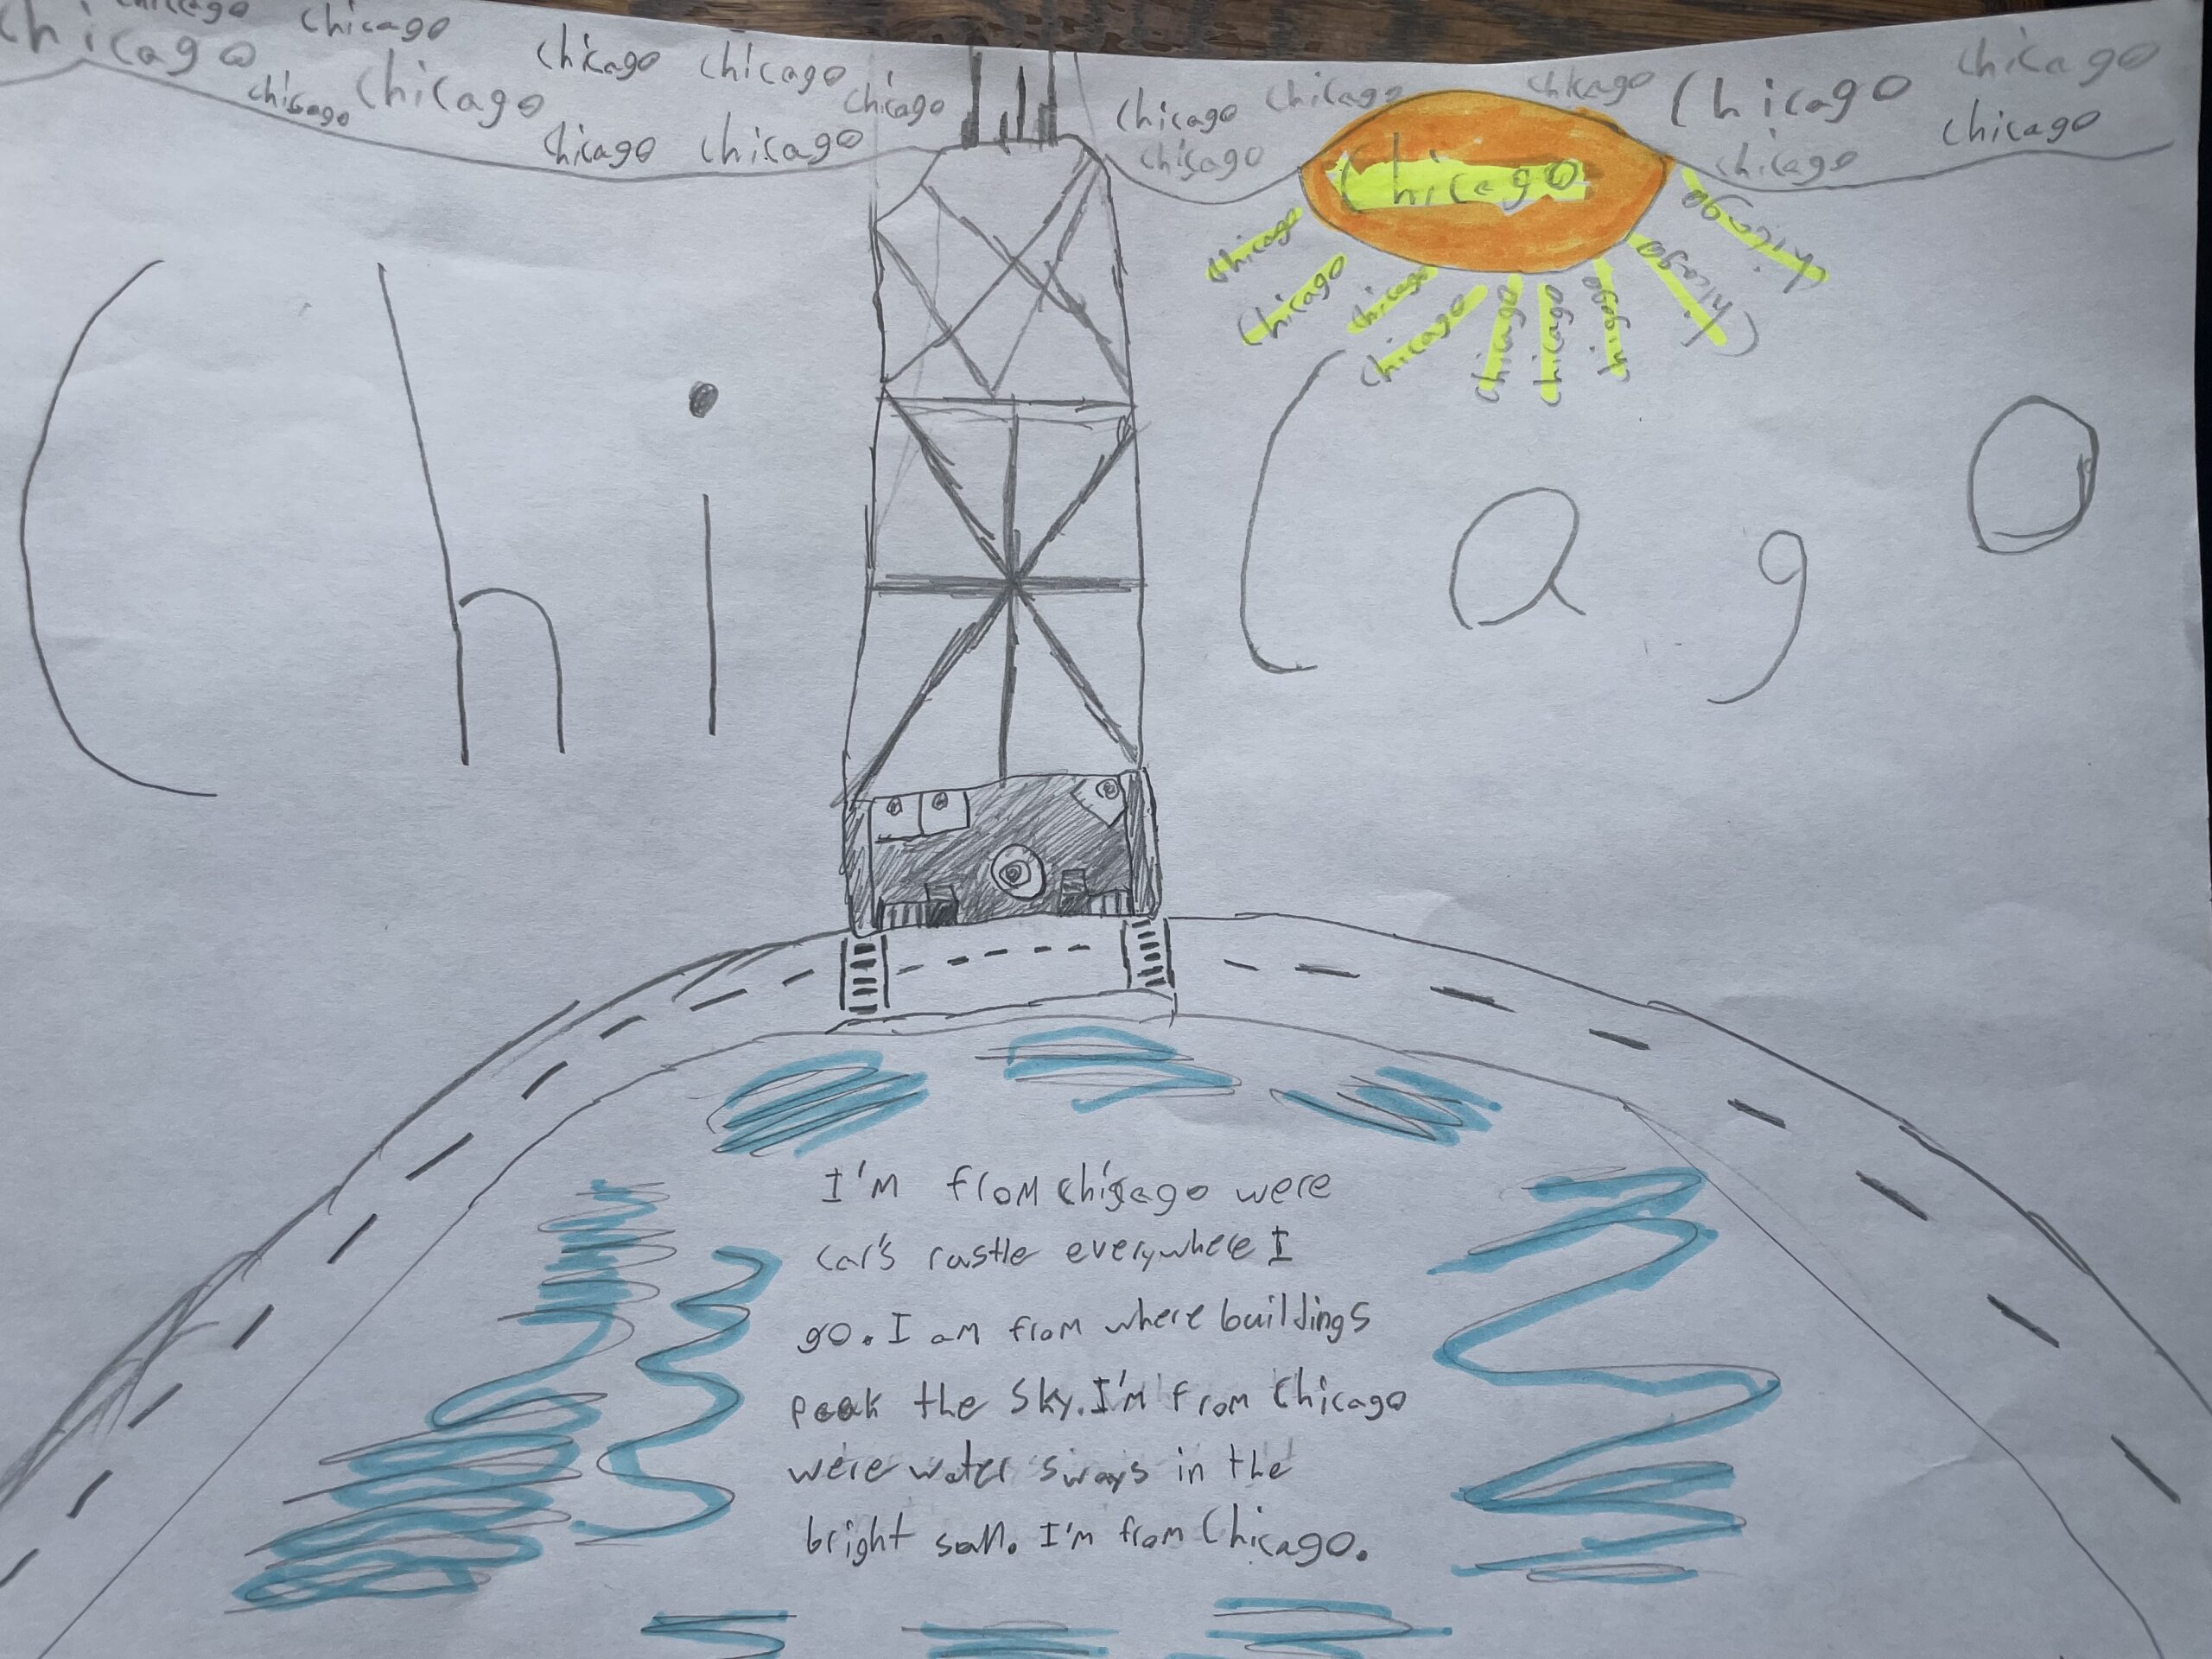 chicago
chicago
chicago
chicago
chicago
chicago
chicago
chicago
chicago
chicago
chicago
chicago
chicago
chicago
Chicago
chicago
chicago
chicago
chicago
Chicago
Chicago
Chicago
chicago
Chicago
Chicago
Chicago
Chicago
Chicago
Chicago
Chicago
I'm from chicago were
car's rustle everywhere I
go. I am from where buildings
peak the sky. I'm from Chicago
were water sways in the
bright sun. I'm from Chicago.